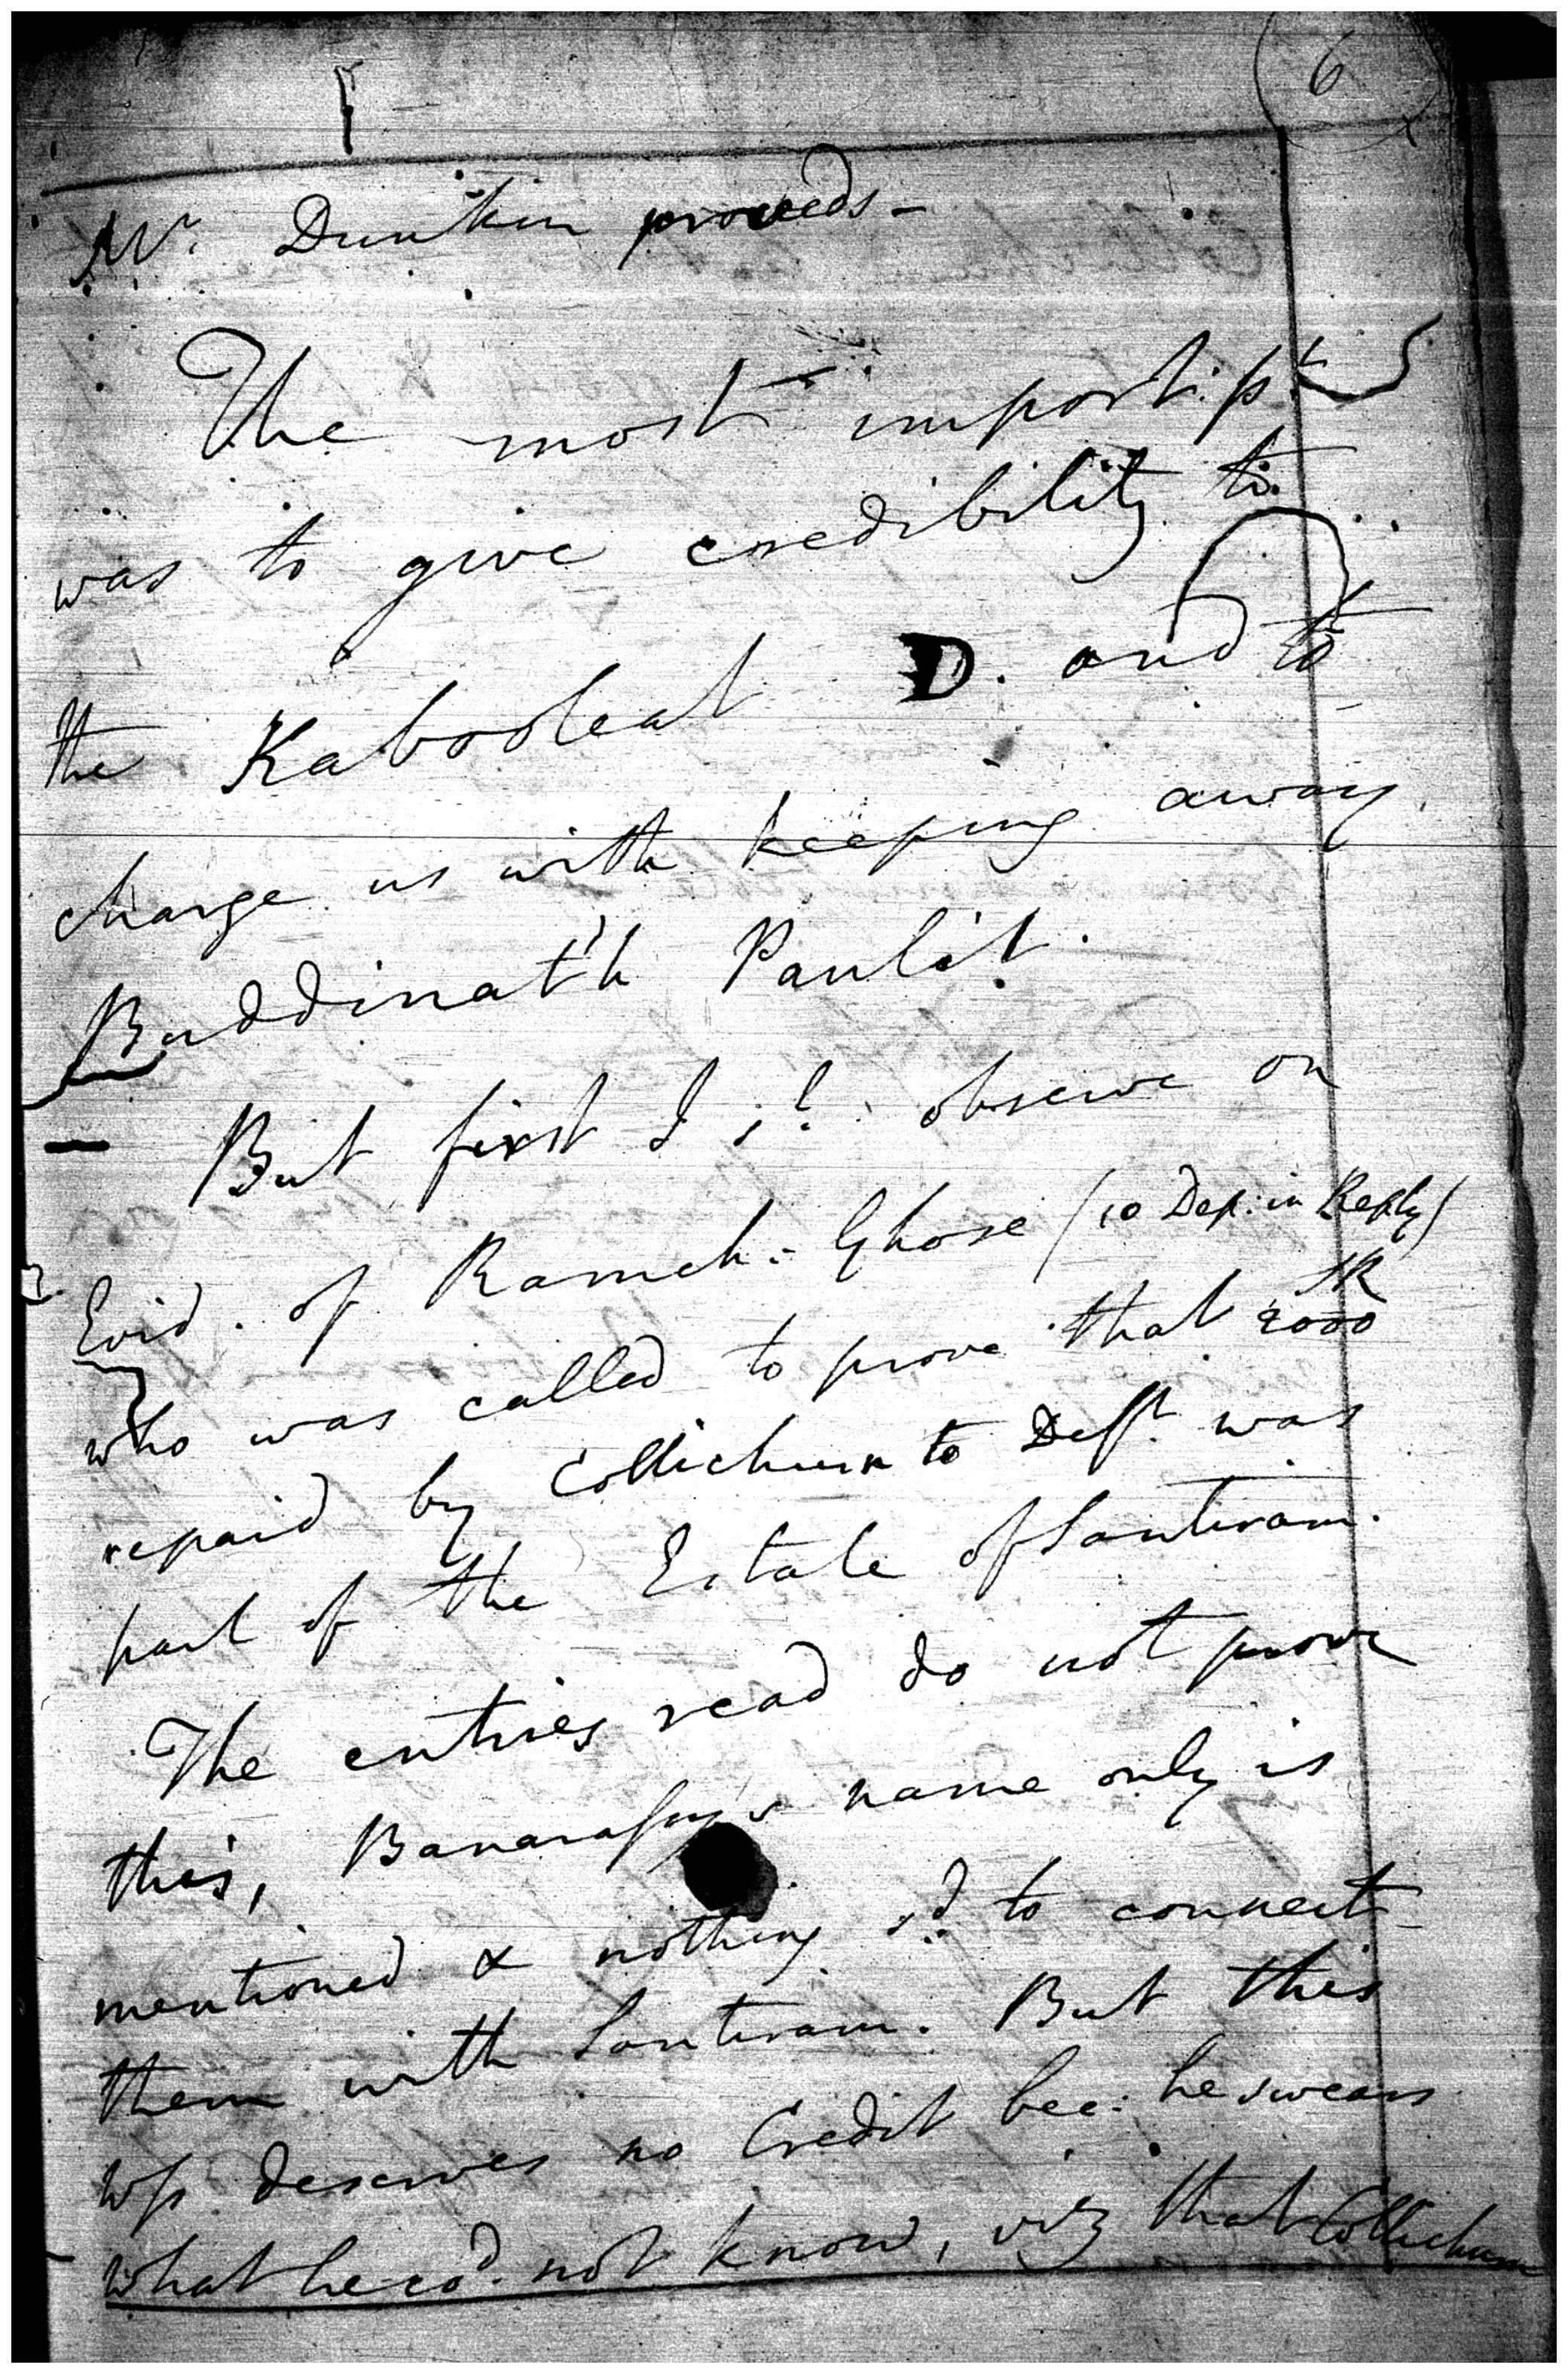 6
Mr. Dunkin proceeds -
The most import. pt.
was to give credibility to
the Kabooleat D. and to
charge us with keeping away
Buddinath Paulit.
But first I sd. observe on
Evid. of Ramch: Ghose (10 Dep: in Reply)
who was called to prove that 2000 SR
repaid by Collichurn to Deft. was
part of the Estate of Santiram.
The entries read do not prove
this, name only is
mentioned & nothing sd. to connect
them with Santiram. But this
Ws deserves no Credit bec: he swears
what he cod. not know, viz that Collichurn